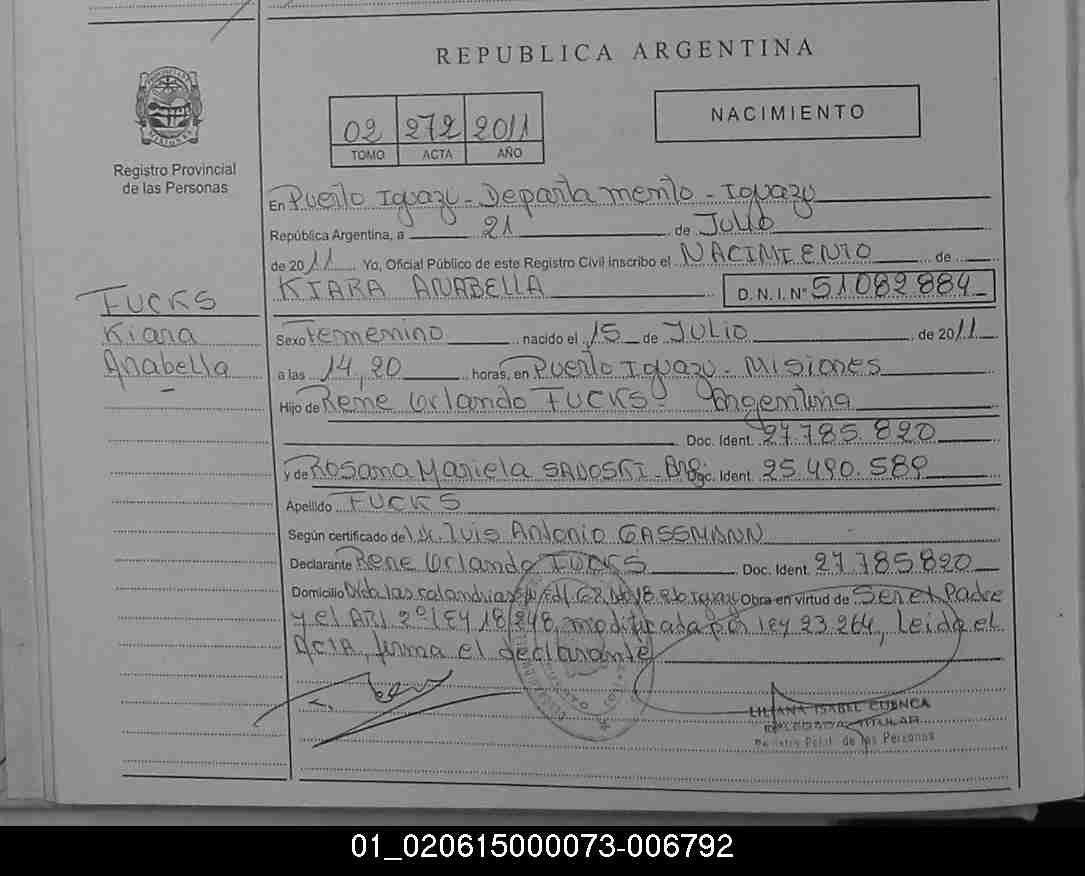 REPUBLICA ARGENTINA
NACIMIENTO
02 272 2011
TOMO ACTA AÑO
Registro Provincial
de las Personas
En Puerto Iguazu - Departamento - Iguazu
República Argentina, a 21 de Julio
de 2011 Yo, Oficial Público de este Registro Civil inscribo el NACIMIENTO de
KIARA ANABELLA D.N.I. Nº 51082884
FUCKS
Kiara
Anabella
Sexo Femenino nacido el 15 de JULIO de 2011
a las 14,20 horas, en Puerto Iguazu - Misiones
Hijo de Rene Orlando FUCKS - Argentina
Doc. Ident. 27.785.820
y de Rosana Mariela SADOSKI - Arg. Doc. Ident. 25.490.589
Apellido FUCKS
Según certificado de Luis Antonio GASSMANN
Declarante Rene Orlando FUCKS Doc. Ident. 27.785.820
Domicilio las calandrias Obra en virtud de Ser el Padre
y el ART 2º LEY 18.248, modificada por LEY 23.264, Leida el
ACTA, firma el declarante
LILIANA ISABEL CUENCA
DELEGADA TITULAR
de las Personas
01_020615000073-006792